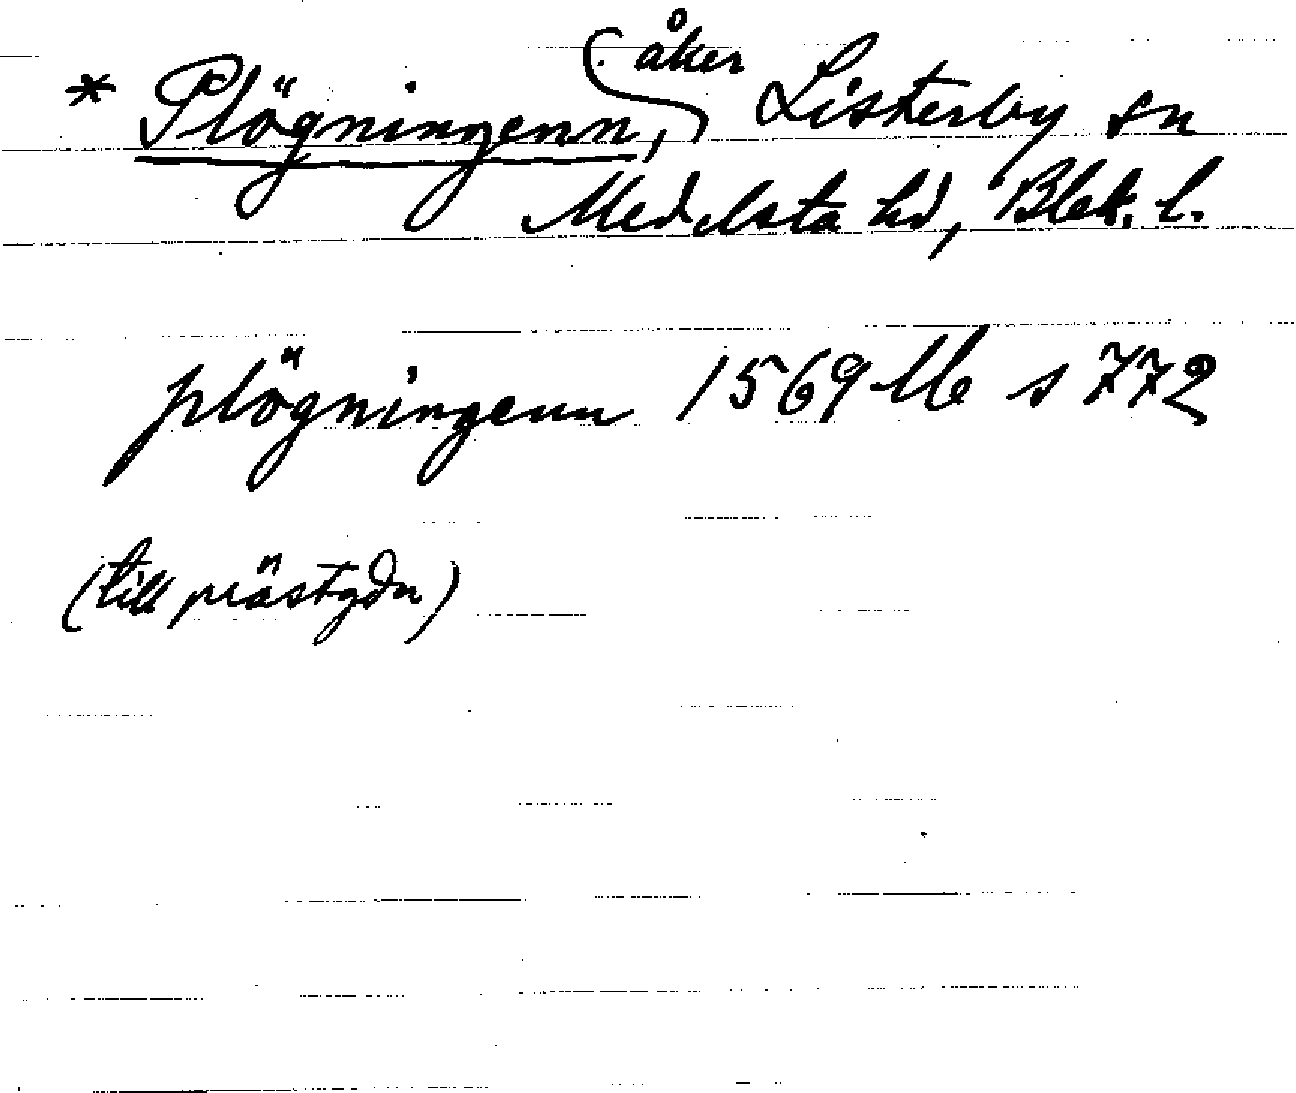 * Plögningenn, åker Listerby sn
Medelsta hd, Blek. l.
plögningenn 1569 Mb s 772
(till prästgdn)